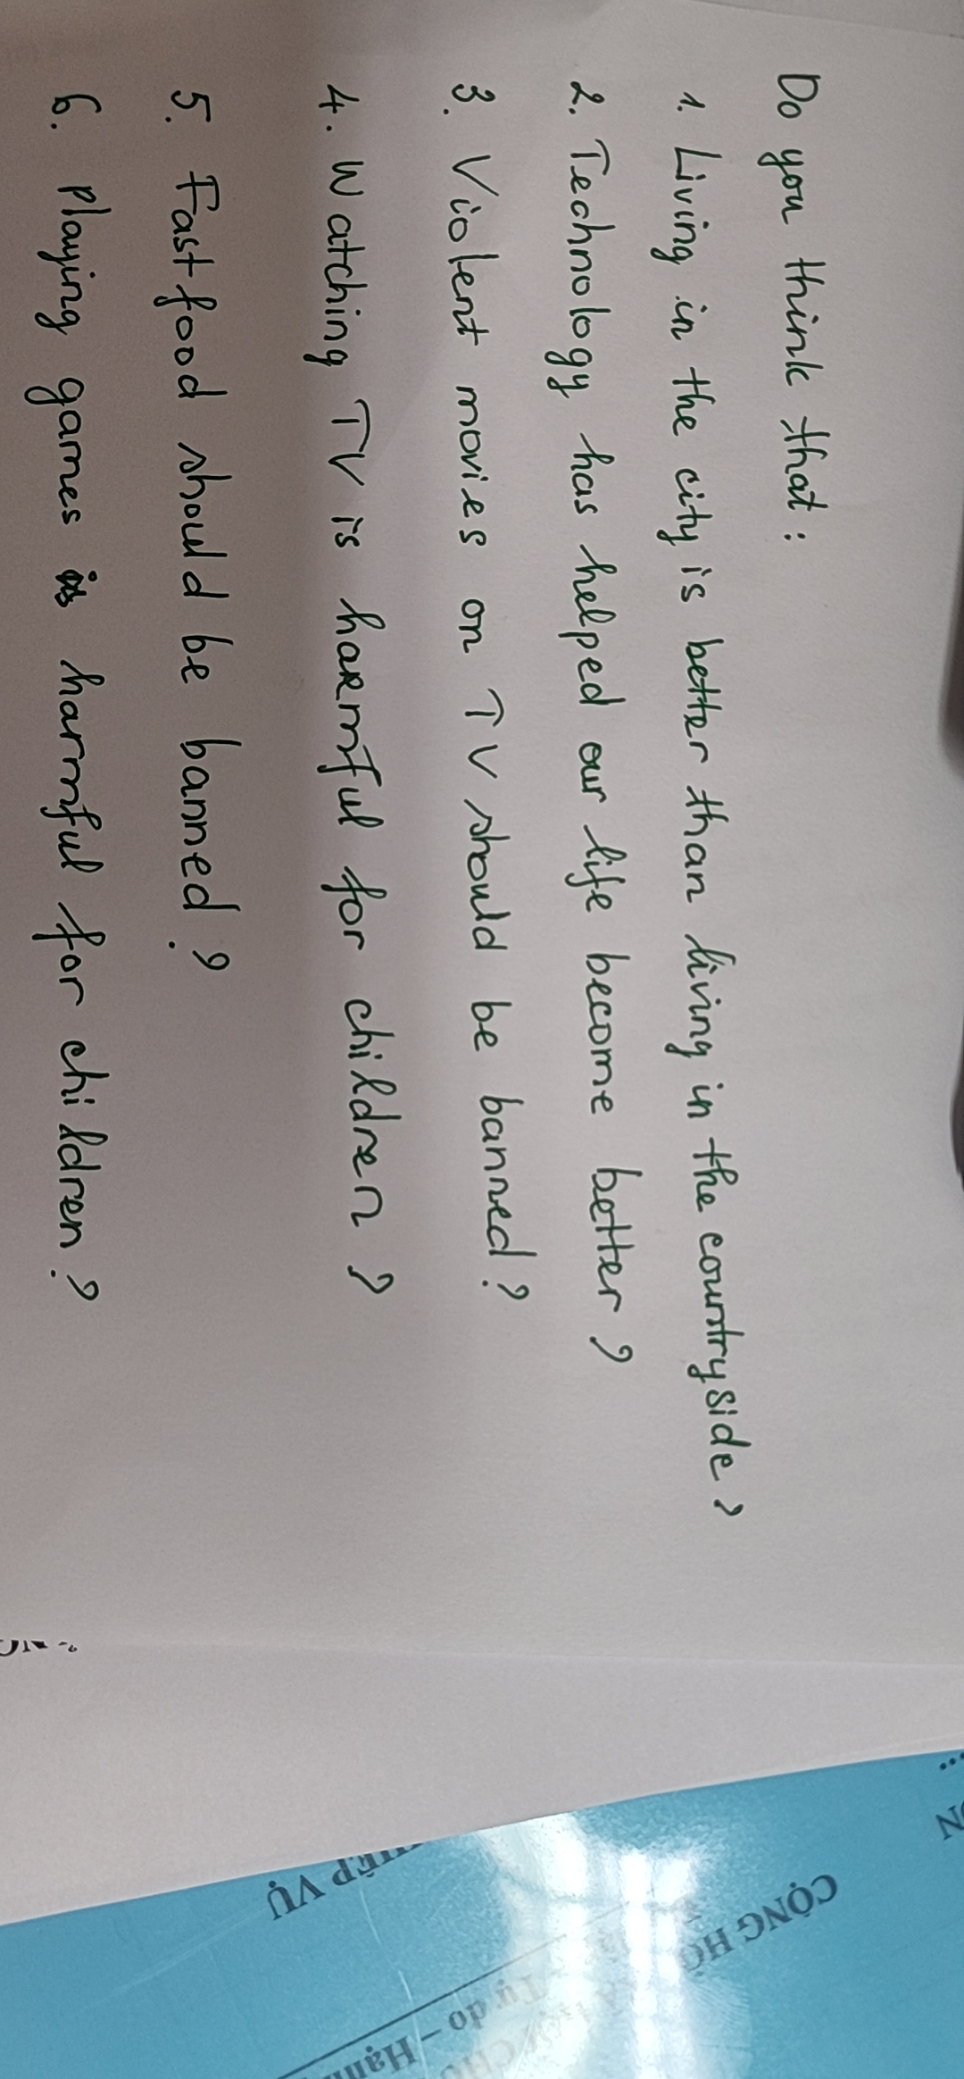 Do you think that:
1. Living in the city is better than living in the countryside?
2. Technology has helped our life become better?
3. Violent movies on TV should be banned?
4. Watching TV is harmful for children?
5. Fast food should be banned?
6. Playing games is harmful for children?
CỘNG
Tự do – Hạnh
VỤ